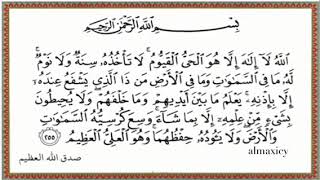 بِسْمِ اللَّهِ الرَّحْمَٰنِ الرَّحِيمِ
اللَّهُ لَا إِلَٰهَ إِلَّا هُوَ الْحَيُّ الْقَيُّومُ ۚ لَا تَأْخُذُهُ سِنَةٌ وَلَا نَوْمٌ ۚ
لَّهُ مَا فِي السَّمَاوَاتِ وَمَا فِي الْأَرْضِ ۗ مَن ذَا الَّذِي يَشْفَعُ عِندَهُ
إِلَّا بِإِذْنِهِ ۚ يَعْلَمُ مَا بَيْنَ أَيْدِيهِمْ وَمَا خَلْفَهُمْ ۖ وَلَا يُحِيطُونَ
بِشَيْءٍ مِّنْ عِلْمِهِ إِلَّا بِمَا شَاءَ ۚ وَسِعَ كُرْسِيُّهُ السَّمَاوَاتِ
وَالْأَرْضَ ۖ وَلَا يَئُودُهُ حِفْظُهُمَا ۚ وَهُوَ الْعَلِيُّ الْعَظِيمُ ٢٥٥
almaxicy
صدق الله العظيم